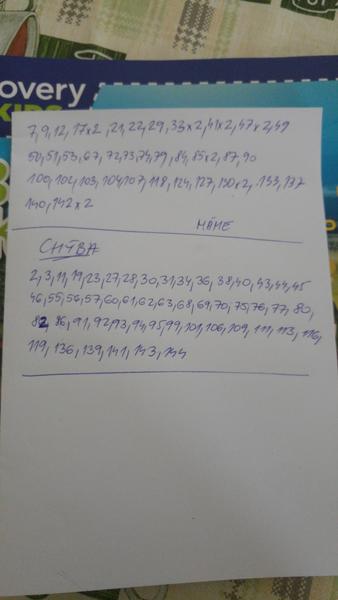 covery
KIDS
7, 9, 12, 17x2, 21, 22, 29, 33x2, 41x2, 47x2, 49
50, 51, 53, 67, 72, 73, 74, 79, 84, 85x2, 87, 90
100, 102, 103, 104, 107, 118, 124, 127, 130x2, 133, 137
140, 142x2
MÁME
CHÝBA
2, 3, 11, 19, 23, 27, 28, 30, 31, 34, 36, 38, 40, 43, 44, 45
46, 55, 56, 57, 60, 61, 62, 63, 68, 69, 70, 75, 76, 77, 80,
82, 86, 91, 92, 93, 94, 95, 99, 101, 106, 109, 111, 113, 116,
119, 136, 139, 141, 143, 144